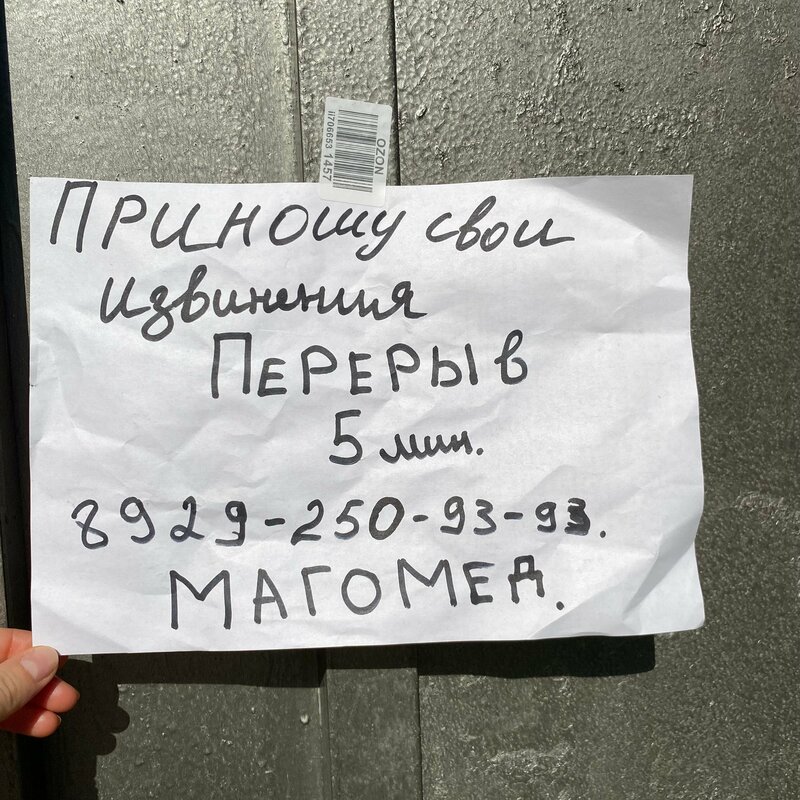 OZON
ii706653 1457
ПРИНОШУ свои
извинения
ПЕРЕРЫВ
5 мин.
8929-250-93-93.
МАГОМЕД.